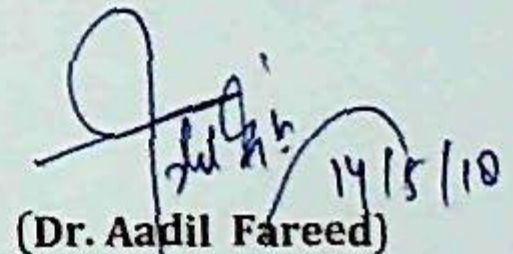 14/5/18
(Dr. Aadil Fareed)